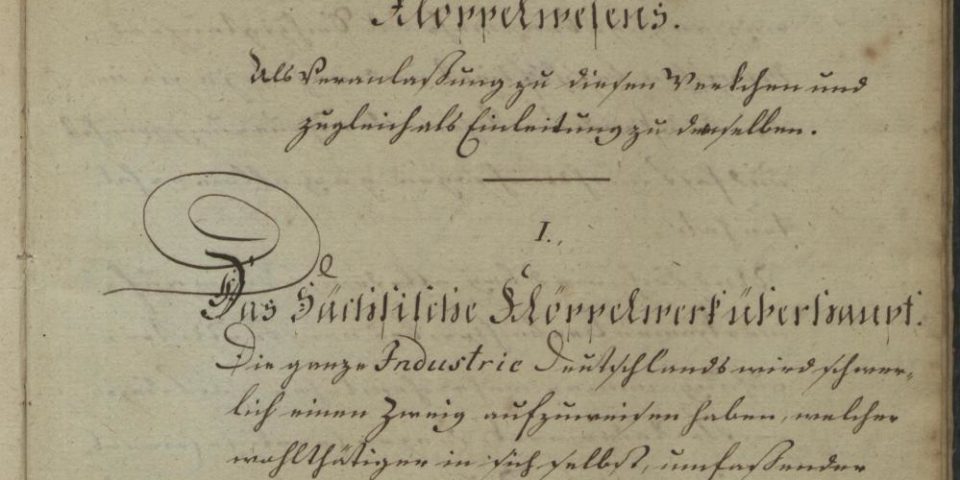 Klöppelwesens.
Als Veranlaßung zu diesen Werkchen und
zugleich als Einleitung zu denselben.
I.
Das Sächsische Klöppelwerk überhaupt.
Die ganze Industrie Deutschlands wird schwer-
lich einen Zweig aufzuweisen haben, welcher
wohlthätiger in sich selbst, umfaßender